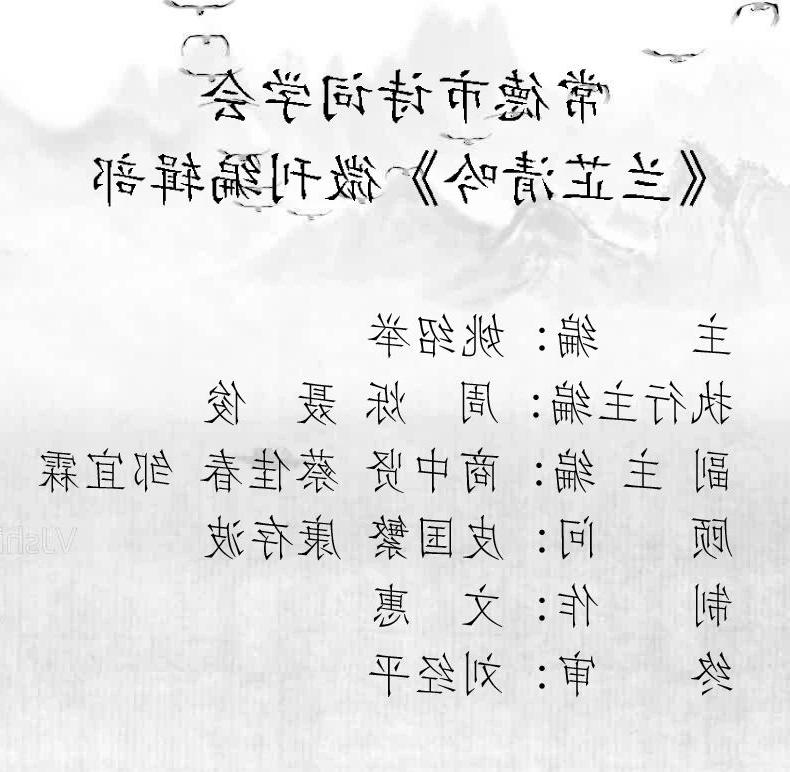 常德市诗词学会
《兰芷清吟》微刊编辑部
主 编：姚绍举
执行主编：周 烁 聂 俊
副 主 编：商中贤 蔡佳春 邹宜霖
顾 问：皮国繁 康存波
制 作：文 惠
终 审：刘经平